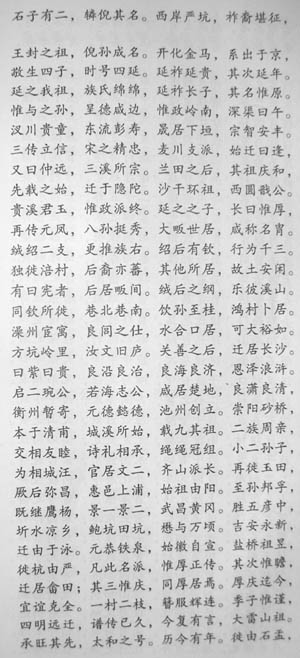 石子有二，犊倪其名。西岸严坑，祚裔堪征，
王封之祖，倪孙成名。开化金马，系出于京，
敬生四子，时号四延。延祚延贵，其次延年。
延之我祖，族氏绵绵，延祚长子，其名惟原。
惟与之孙，呈德咸边，惟政岭南，深渠曰午。
汊川贵童，东流彭寿，晟居下垣，宗智安丰。
三传立信，宋之精忠，麦川支派，始迁曰逢，
又曰仲远，三溪所宗。兰田之后，其祖庆和，
先栽之始，迁于隐陀。沙干环祖，西圆戬公。
贵溪君玉，惟政派终。延之之子，长曰惟厚，
再传元凤，八孙挺秀，大畈世居，咸称名胄。
绒绍二支，更推族右。绍后有钦，行为千三。
独徙涪村，后裔亦蕃，其他所居，故土安闲。
有曰宪者，后居畈间。绒后之纲，乐彼溪山。
同钦所徙，巷北巷南。饮孙至桂，鸿村卜居。
滦州宦寓，良闾之仕，水合口居，可大裕如。
方坑岭里，汝文旧庐。关善之后，迁居长沙。
曰紫曰贵，良沿良治，良海良济，恩泽浪浒。
启二琬公，若海志公，咸居楚地，良潇良清，
衡州暂寄，元德懿德，池州创立。崇阳砂桥，
本于清甫，城溪所始，载九其祖。二族周亲，
交相友睦，诗礼相承，绳绳冠组。小二孙子，
为相城汪，官居文二，齐山派长。再徙玉田，
厥后弥昌，惠邑上浦，始祖由阳。至孙邦孚，
既继鹰杨，景一景二，武昌黄冈。胜五彦中，
圻水凉乡，鲍坑田坑，懋与万顷。吉安永新，
迁由于泳。元恭铁泉，始徽自宣。盐桥祖昱，
徙杭由严，凡此名派，惟厚正传。其次惟瞻，
迁居畬田；其三惟庆，同厚居焉。厚庆迄今，
宜谊克全。一村二枝，簪服辉连。季子惟谨，
四明远迁，谱传已久，今复有言，大雷山祖。
承旺其先，太和之号。历今有年。徙由石盂，